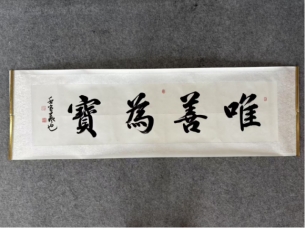 唯善為寶